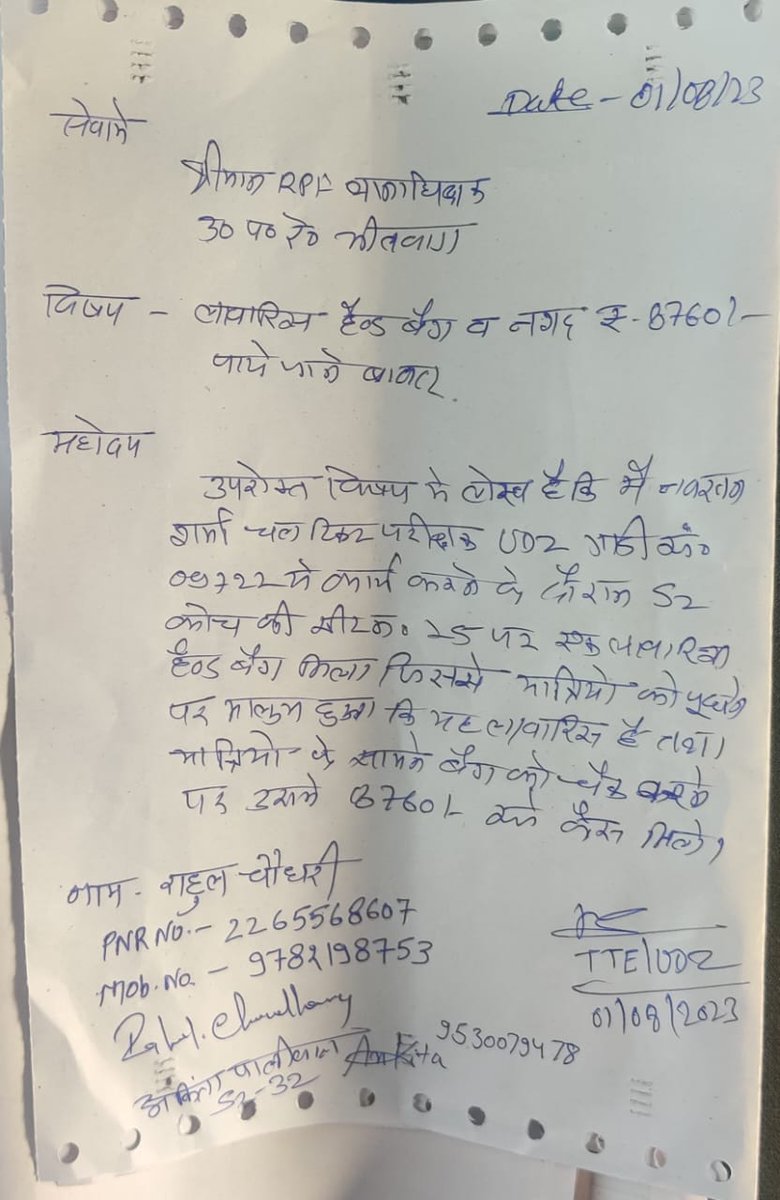 Date - 01/08/23
सेवामे
श्रीमान RPF थानाधिक्षक
उ० प० रे० भीलवाडा
विषय - लावारिस हैन्ड बैग व नगद ₹- 8760/-
पाये जाने बाबत.
महोदय
उपरोक्त विषय मे लेख है कि मै नवरतन
शर्मा चल टिकट परीक्षक UDZ गाडी सं०
09722 मे कार्य करने के दौरान S2
कोच की सीट न० 25 पर एक लावारिस
हैन्ड बैग मिला जिससे यात्रियो को पूछने
पर मालुम हुआ कि यह लावारिस है तथा
यात्रियो के सामने बैग को चैक करने
पर उसमे 8760/- रू० कैस मिले।
नाम - राहुल चौधरी
PNR NO. - 2265568607
Mob. No. - 9782198753
TTE/UDZ
01/08/2023
Rahul. Choudhary
अंकिता पालीवाल Ankita 9530079478
S2-32